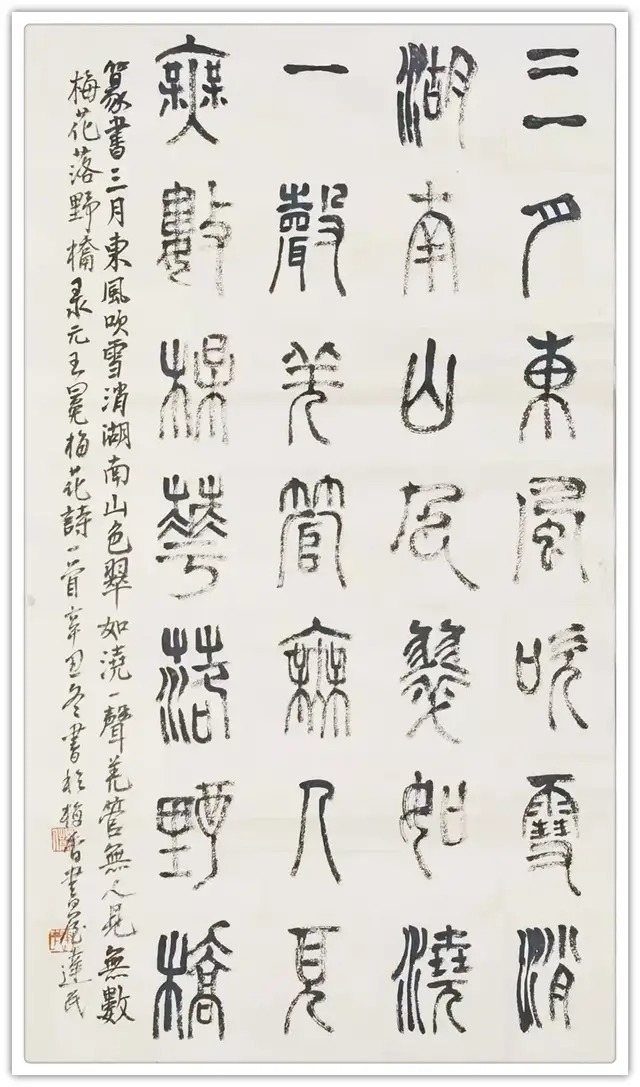 三月東風吹雪消
湖南山色翠如澆
一聲羌管無人見
無數梅華落野橋
篆書三月東風吹雪消湖南山色翠如澆一聲羌管無人見無數
梅花落野橋录元王冕梅花詩一首辛丑冬書於梅香書屋達民